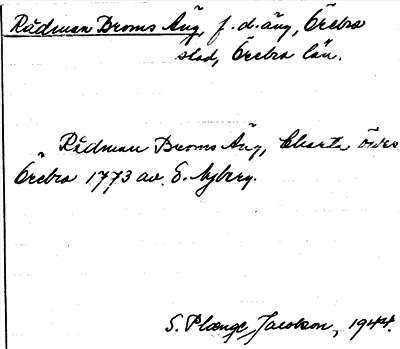 Rådman Broms Äng, f.d. äng, Örebro
stad, Örebro län.
Rådman Broms Äng, Charta över
Örebro 1773 av E. Nyberg.
S. Plænge Jacobson, 1944.